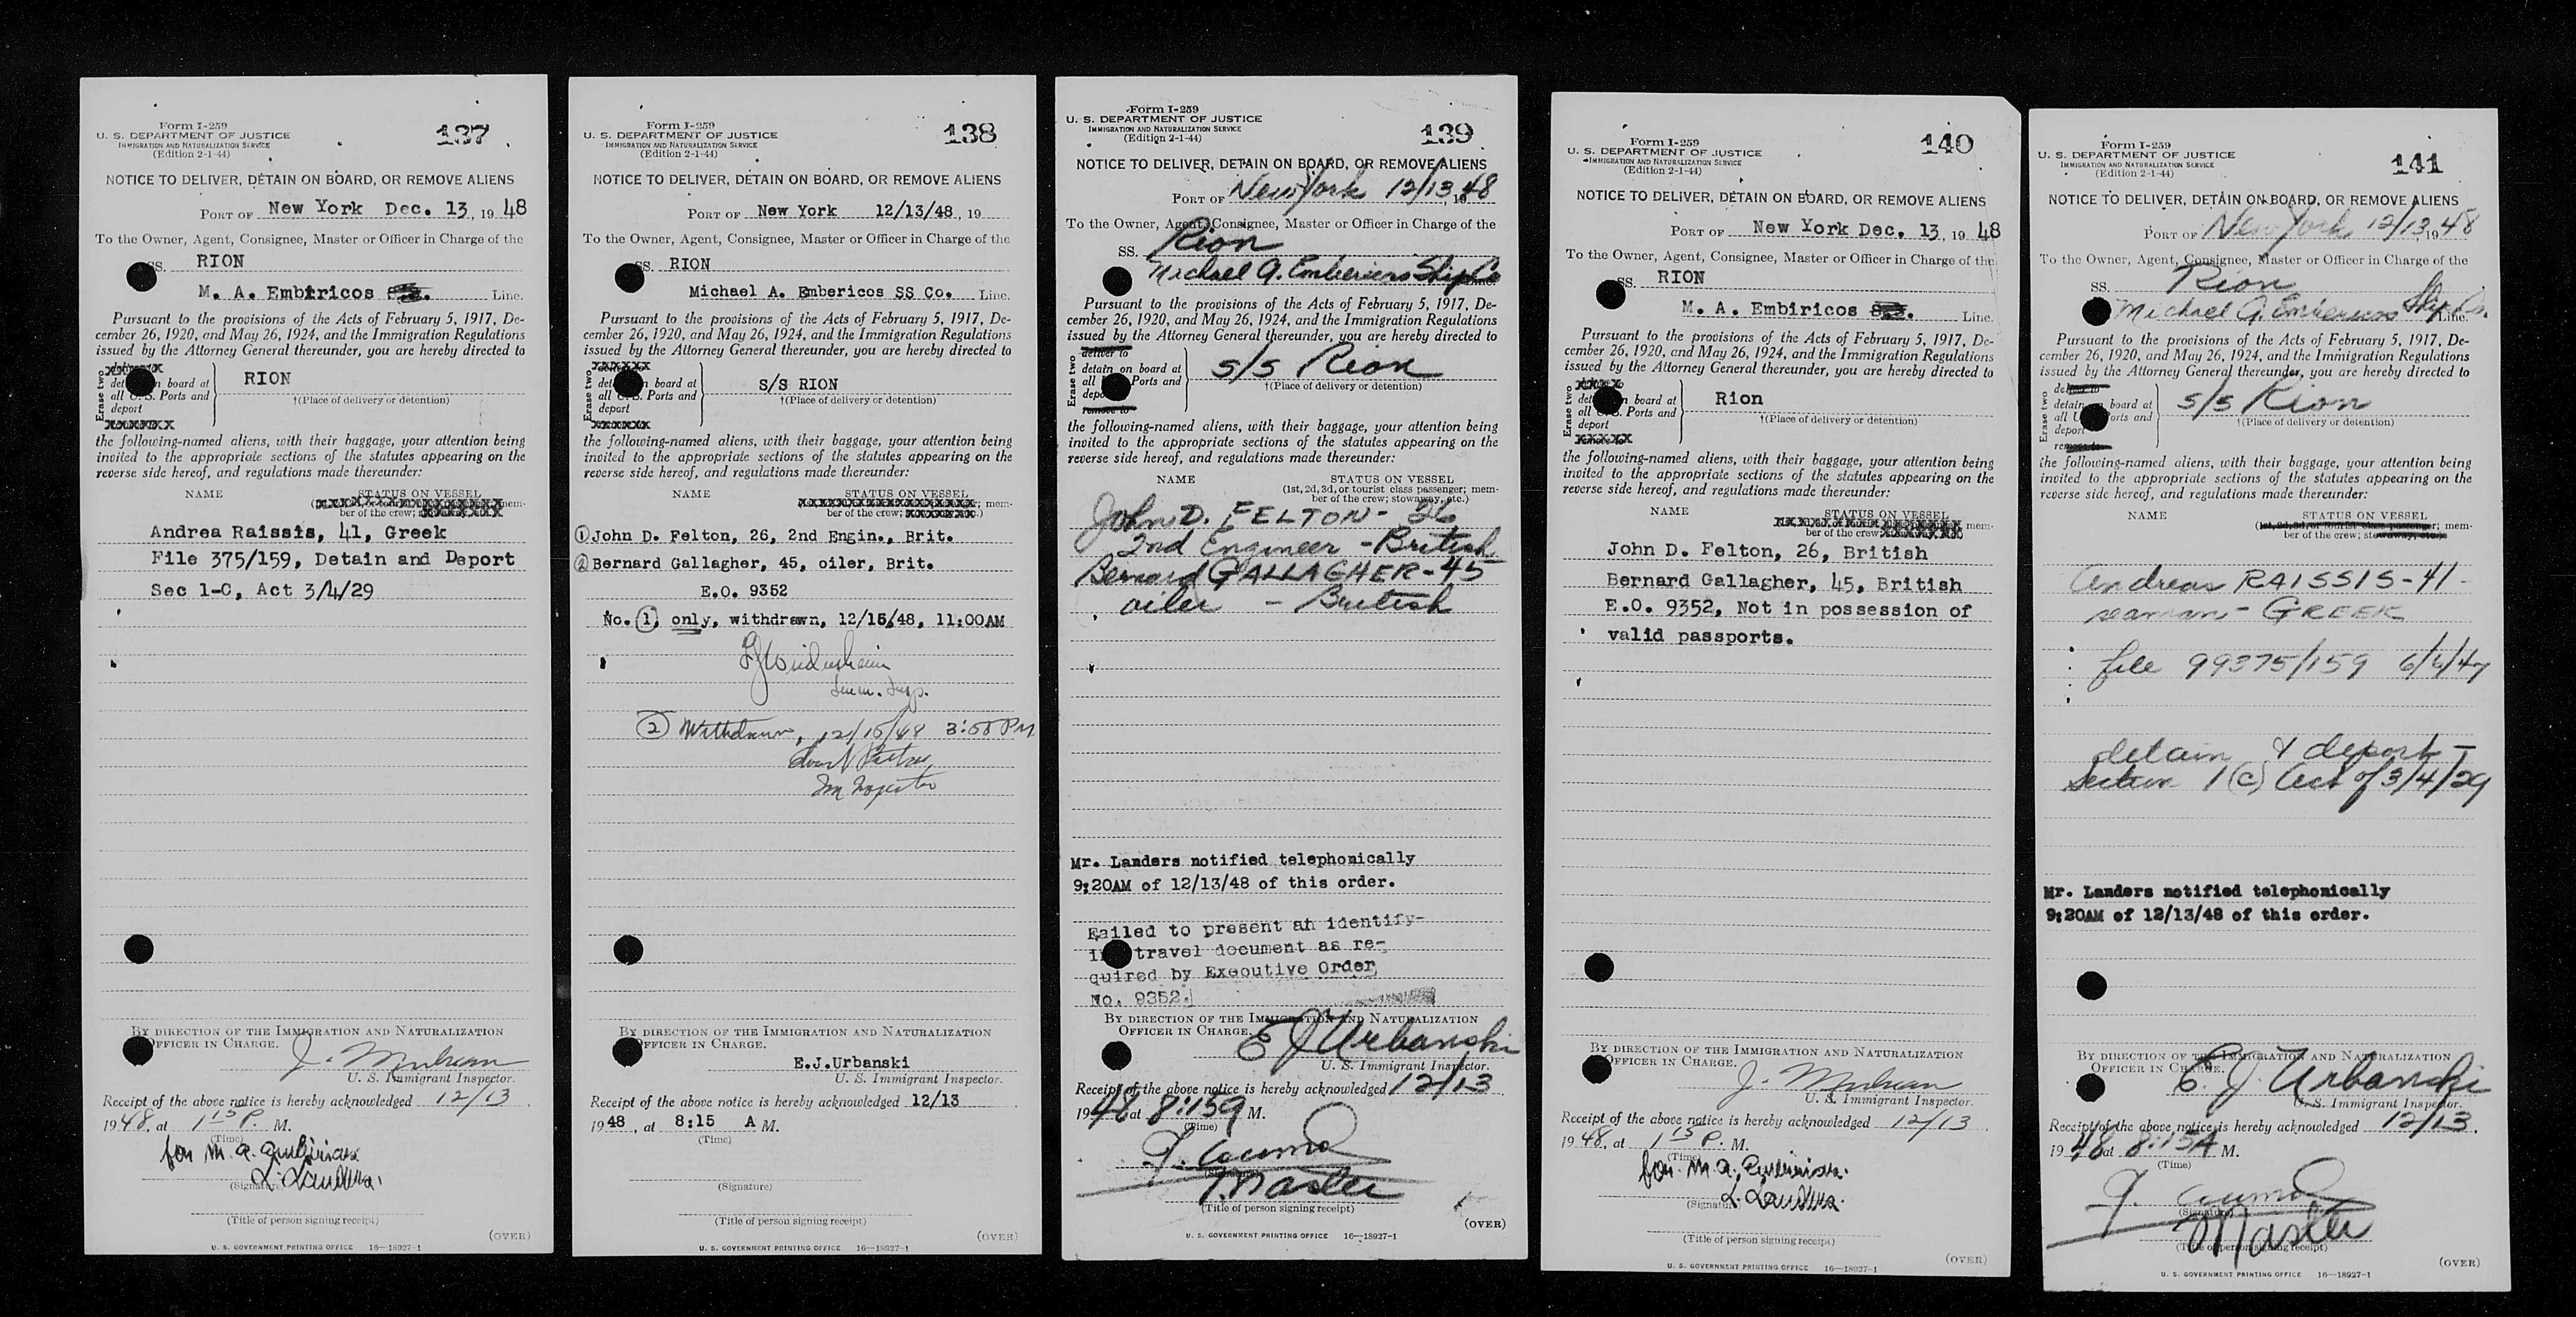 Form I-259
U. S. DEPARTMENT OF JUSTICE
IMMIGRATION AND NATURALIZATION SERVICE
(Edition 2-1-44)
137
NOTICE TO DELIVER, DETAIN ON BOARD, OR REMOVE ALIENS
PORT OF New York Dec. 13, 1948
To the Owner, Agent, Consignee, Master or Officer in Charge of the
SS. RION
M. A. Embiricos Line.
Pursuant to the provisions of the Acts of February 5, 1917, De-
cember 26, 1920, and May 26, 1924, and the Immigration Regulations
issued by the Attorney General thereunder, you are hereby directed to
Erase two
board at RION
all U. S. Ports and †(Place of delivery or detention)
deport
the following-named aliens, with their baggage, your attention being
invited to the appropriate sections of the statutes appearing on the
reverse side hereof, and regulations made thereunder:
NAME STATUS ON VESSEL
mem-
ber of the crew;
Andrea Raissis, 41, Greek
File 375/159, Detain and Deport
Sec 1-C, Act 3/4/29
BY DIRECTION OF THE IMMIGRATION AND NATURALIZATION
OFFICER IN CHARGE.
U. S. Immigrant Inspector.
Receipt of the above notice is hereby acknowledged 12/13
1948, at 1 15 P. M.
(Time)
for M. A.
L. Landers.
(Signature)
(Title of person signing receipt)
(OVER)
U. S. GOVERNMENT PRINTING OFFICE 16—18927-1
Form I-259
U. S. DEPARTMENT OF JUSTICE
IMMIGRATION AND NATURALIZATION SERVICE
(Edition 2-1-44)
138
NOTICE TO DELIVER, DETAIN ON BOARD, OR REMOVE ALIENS
PORT OF New York 12/13/48, 19
To the Owner, Agent, Consignee, Master or Officer in Charge of the
SS. RION
Michael A. Embericos SS Co. Line.
Pursuant to the provisions of the Acts of February 5, 1917, De-
cember 26, 1920, and May 26, 1924, and the Immigration Regulations
issued by the Attorney General thereunder, you are hereby directed to
Erase two
board at S/S RION
all U. S. Ports and †(Place of delivery or detention)
deport
the following-named aliens, with their baggage, your attention being
invited to the appropriate sections of the statutes appearing on the
reverse side hereof, and regulations made thereunder:
NAME STATUS ON VESSEL
mem-
ber of the crew;
① John D. Felton, 26, 2nd Engin., Brit.
② Bernard Gallagher, 45, oiler, Brit.
E.O. 9352
No. ① only, withdrawn, 12/15/48, 11:00AM
Imm. Insp.
② Withdrawn, 12/15/48 PM
BY DIRECTION OF THE IMMIGRATION AND NATURALIZATION
OFFICER IN CHARGE.
E.J.Urbanski
U. S. Immigrant Inspector.
Receipt of the above notice is hereby acknowledged 12/13
1948, at 8:15 A M.
(Time)
(Signature)
(Title of person signing receipt)
(OVER)
U. S. GOVERNMENT PRINTING OFFICE 16—18927-1
Form I-259
U. S. DEPARTMENT OF JUSTICE
IMMIGRATION AND NATURALIZATION SERVICE
(Edition 2-1-44)
139
NOTICE TO DELIVER, DETAIN ON BOARD, OR REMOVE ALIENS
PORT OF New York 12/13 1948
To the Owner, Agent, Consignee, Master or Officer in Charge of the
SS. Rion
Michael A. Embericos Ship Co
Pursuant to the provisions of the Acts of February 5, 1917, De-
cember 26, 1920, and May 26, 1924, and the Immigration Regulations
issued by the Attorney General thereunder, you are hereby directed to
Erase two
deliver to
detain on board at S/S Rion
all Ports and †(Place of delivery or detention)
deport
remove to
the following-named aliens, with their baggage, your attention being
invited to the appropriate sections of the statutes appearing on the
reverse side hereof, and regulations made thereunder:
NAME STATUS ON VESSEL
(1st, 2d, 3d, or tourist class passenger; mem-
ber of the crew; stowaway, etc.)
John D. FELTON - 26
2nd Engineer - British
Bernard GALLAGHER - 45
oiler - British
Mr. Landers notified telephonically
9:20AM of 12/13/48 of this order.
Failed to present an identify-
ing travel document as re-
quired by Executive Order
No. 9352.
BY DIRECTION OF THE IMMIGRATION AND NATURALIZATION
OFFICER IN CHARGE.
E J Urbanski
U. S. Immigrant Inspector.
Receipt of the above notice is hereby acknowledged 12/13
1948 at 8:15A M.
(Time)
(Signature)
Master
(Title of person signing receipt)
(OVER)
U. S. GOVERNMENT PRINTING OFFICE 16—18927-1
Form I-259
U. S. DEPARTMENT OF JUSTICE
IMMIGRATION AND NATURALIZATION SERVICE
(Edition 2-1-44)
140
NOTICE TO DELIVER, DETAIN ON BOARD, OR REMOVE ALIENS
PORT OF New York Dec. 13, 1948
To the Owner, Agent, Consignee, Master or Officer in Charge of the
SS. RION
M. A. Embiricos Line.
Pursuant to the provisions of the Acts of February 5, 1917, De-
cember 26, 1920, and May 26, 1924, and the Immigration Regulations
issued by the Attorney General thereunder, you are hereby directed to
Erase two
board at Rion
all U. S. Ports and †(Place of delivery or detention)
deport
the following-named aliens, with their baggage, your attention being
invited to the appropriate sections of the statutes appearing on the
reverse side hereof, and regulations made thereunder:
NAME STATUS ON VESSEL
mem-
ber of the crew;
John D. Felton, 26, British
Bernard Gallagher, 45, British
E.O. 9352, Not in possession of
valid passports.
BY DIRECTION OF THE IMMIGRATION AND NATURALIZATION
OFFICER IN CHARGE.
U. S. Immigrant Inspector.
Receipt of the above notice is hereby acknowledged 12/13
1948, at 1 15 P. M.
(Time)
for M. A.
L. Landers.
(Signature)
(Title of person signing receipt)
(OVER)
U. S. GOVERNMENT PRINTING OFFICE 16—18927-1
Form I-259
U. S. DEPARTMENT OF JUSTICE
IMMIGRATION AND NATURALIZATION SERVICE
(Edition 2-1-44)
141
NOTICE TO DELIVER, DETAIN ON BOARD, OR REMOVE ALIENS
PORT OF New York 12/13, 1948
To the Owner, Agent, Consignee, Master or Officer in Charge of the
SS. Rion
Michael A. Embericos Ship Co. Line.
Pursuant to the provisions of the Acts of February 5, 1917, De-
cember 26, 1920, and May 26, 1924, and the Immigration Regulations
issued by the Attorney General thereunder, you are hereby directed to
Erase two
deliver to
detain on board at S/S Rion
all U. S. Ports and †(Place of delivery or detention)
deport
remove to
the following-named aliens, with their baggage, your attention being
invited to the appropriate sections of the statutes appearing on the
reverse side hereof, and regulations made thereunder:
NAME STATUS ON VESSEL
(1st, 2d, 3d, or tourist class passenger; mem-
ber of the crew; stowaway, etc.)
Andreas RAISSIS - 41 -
seaman - GREEK
file 99375/159 6/6/47
detain & deport -
Section 1(c) Act of 3/4/29
Mr. Landers notified telephonically
9:20AM of 12/13/48 of this order.
BY DIRECTION OF THE IMMIGRATION AND NATURALIZATION
OFFICER IN CHARGE.
E. J. Urbanski
U. S. Immigrant Inspector.
Receipt of the above notice is hereby acknowledged 12/13
1948 at 8:15A M.
(Time)
(Signature)
Master
(Title of person signing receipt)
(OVER)
U. S. GOVERNMENT PRINTING OFFICE 16—18927-1